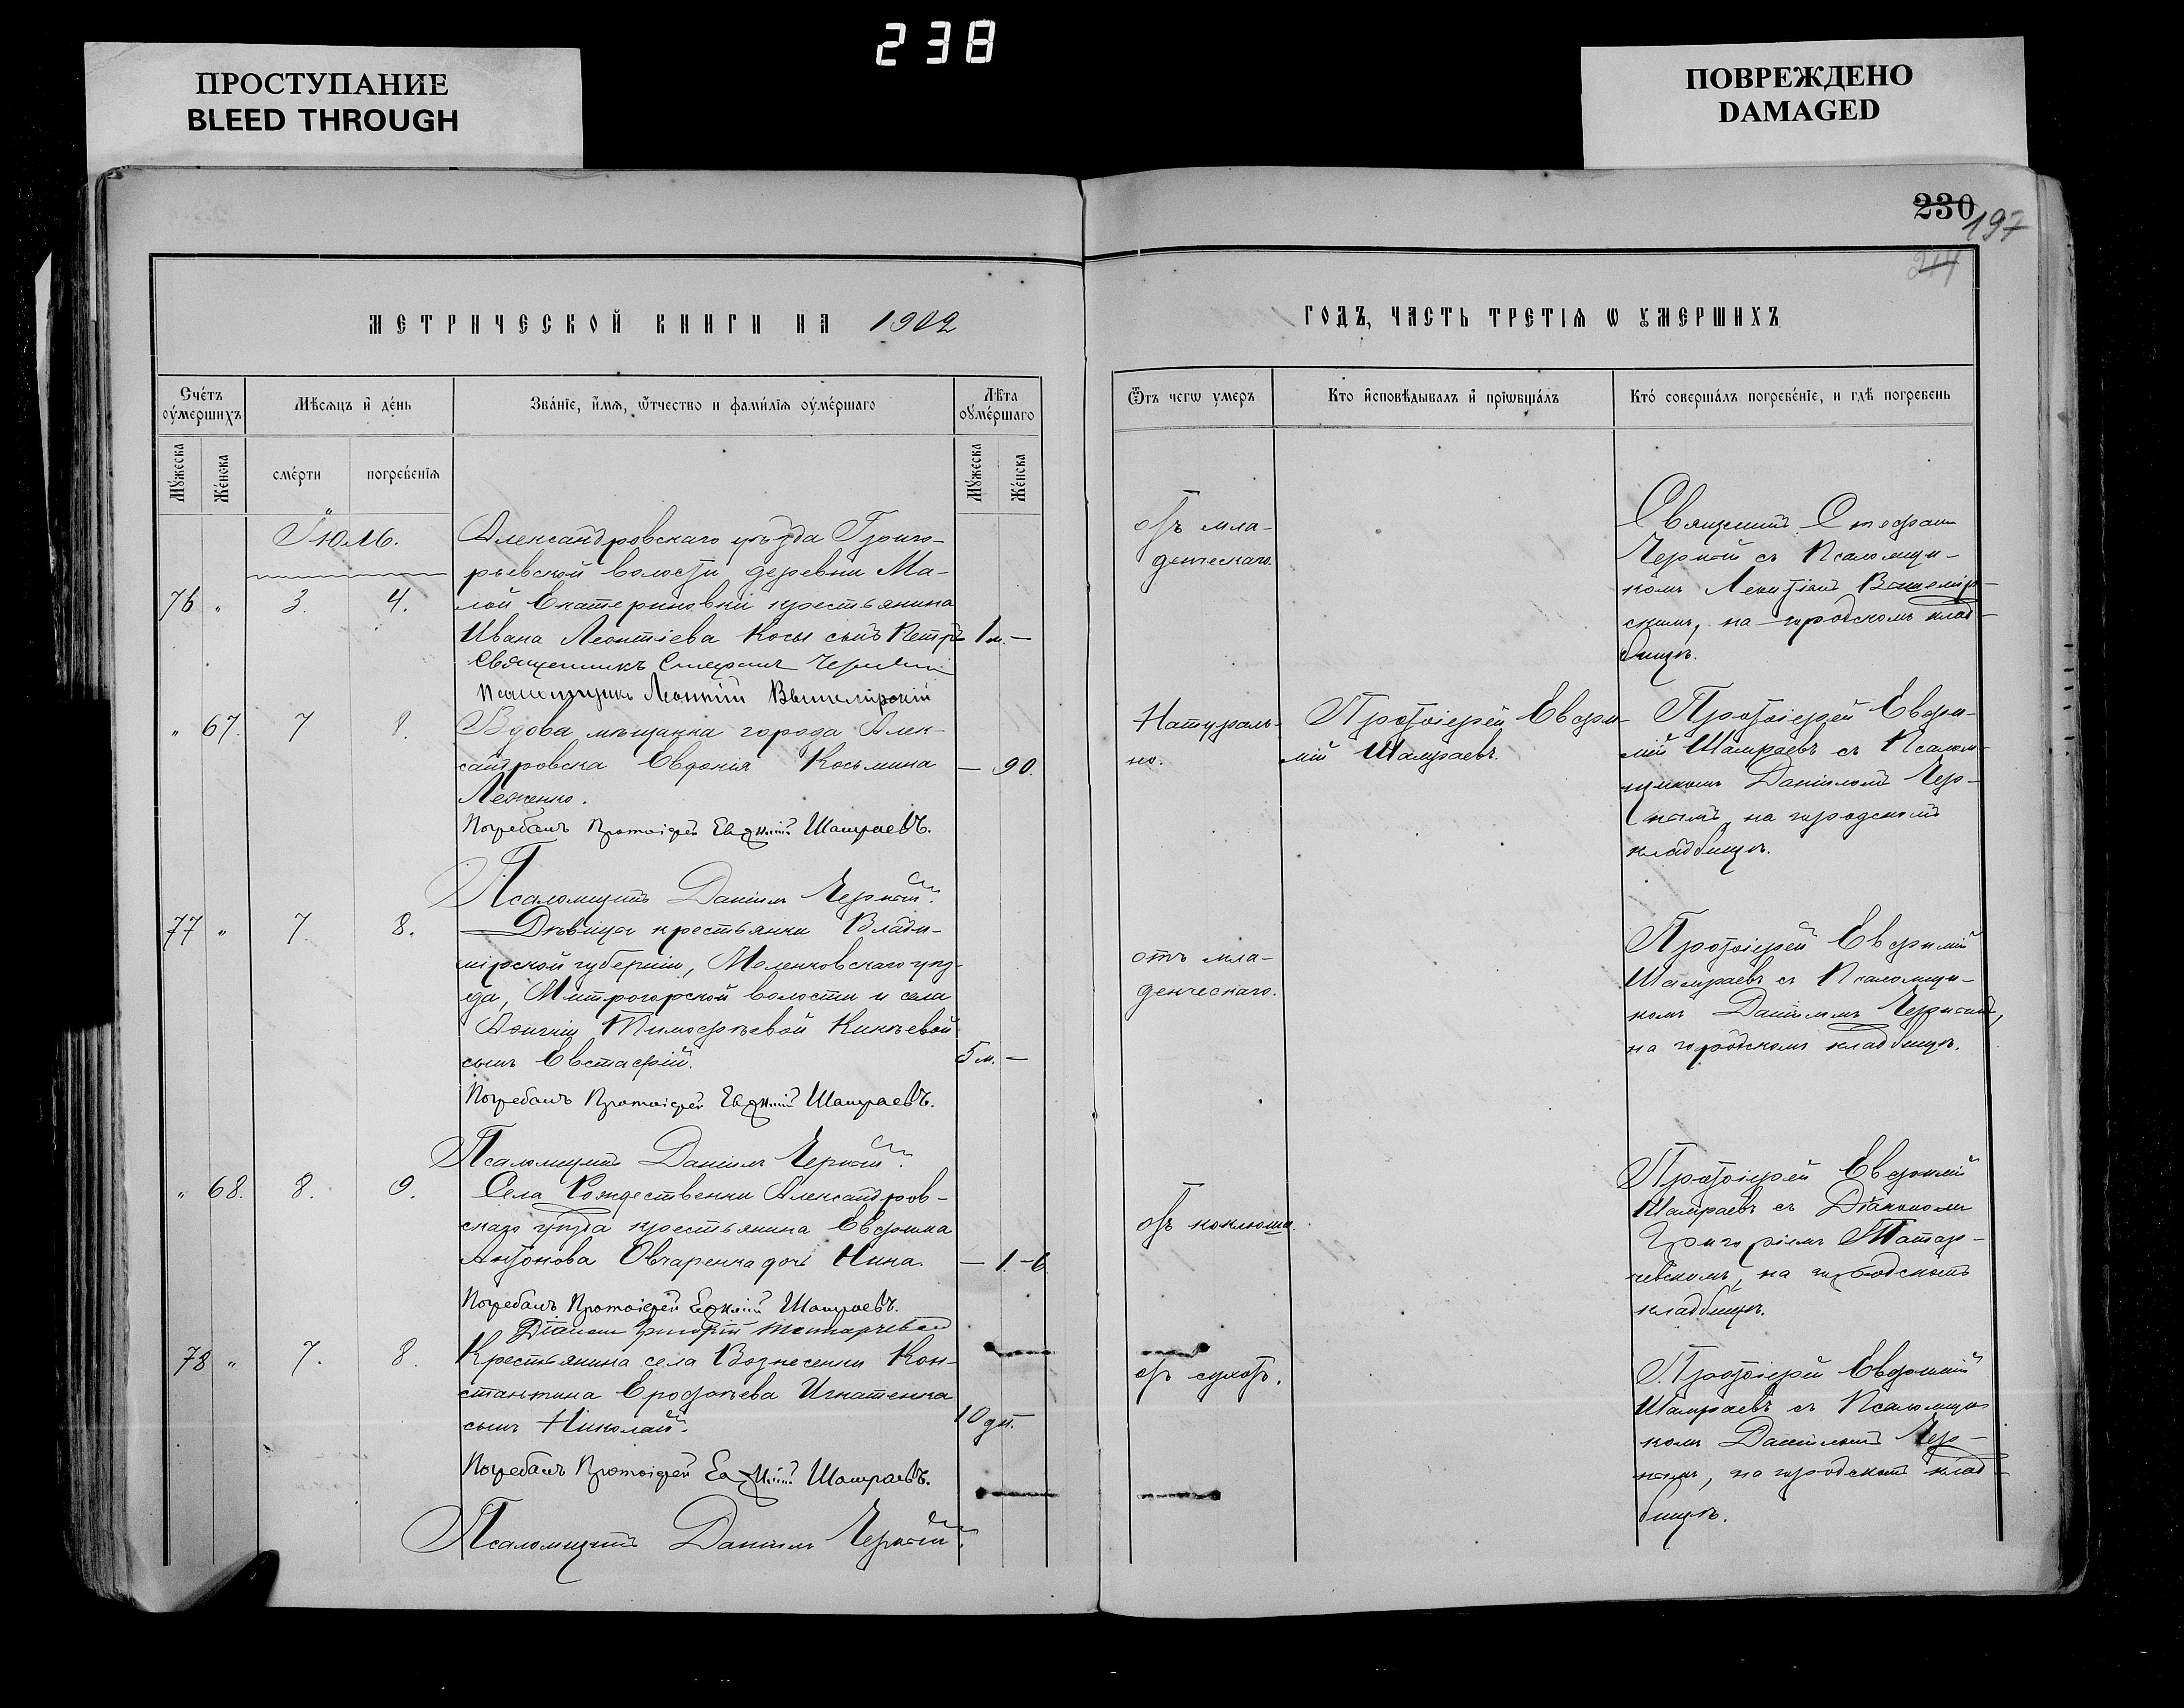 238
ПРОСТУПАНИЕ
BLEED THROUGH
ПОВРЕЖДЕНО
DAMAGED
230
197
214
МЕТРИЧЕСКОЙ КНИГИ НА 1902
ГОДЪ, ЧАСТЬ ТРЕТІѦ Ѡ ОУМЕРШИХЪ
Счетъ оумершихъ
Мѣсѧцъ и день
Званіе, имѧ, ѿчество и фамиліѧ оумершаго
Лѣта оумершаго
Ѿтъ чегѡ умеръ
Кто исповѣдывалъ и пріѡбщалъ
Кто совершалъ погребеніе, и гдѣ погребенъ
Мужеска
Женска
смерти
погребеніѧ
Мужеска
Женска
Іюль.
Александровскаго уѣзда Григо-
рьевской волости деревни Ма-
76 " 3. 4. лой Екатериновки крестьянина
Ивана Леонтіева Косы сынъ Петръ 1 м. —
Священникъ Стефанъ Черный
Псаломщикъ Леонтій
отъ мла-
денческаго.
Священникъ Стефанъ
Черный съ Псаломщи-
комъ Леонтіемъ
скимъ, на городскомъ клад-
бищѣ.
" 67. 7 8. Вдова мѣщанка города Алек-
сандровска Евдокія Косьмина — 90.
Леженко.
Погребалъ Протоіерей Евфимій Шамраевъ.
Псаломщикъ Даніилъ Черный.
Натураль-
но.
Протоіерей Евфи-
мій Шамраевъ.
Протоіерей Евфи-
мій Шамраевъ съ Псалом-
щикомъ Даніиломъ Чер-
нымъ, на городскомъ
кладбищѣ.
77 " 7. 8. Дѣвицы крестьянки Влади-
мірской губерніи, Меленковскаго уѣз-
да, Митрогорской волости и села
Тимофѣевой
сынъ Евстафій. 5 м. —
Погребалъ Протоіерей Евфимій Шамраевъ.
Псаломщикъ Даніилъ Черный.
отъ мла-
денческаго.
Протоіерей Евфимій
Шамраевъ съ Псаломщи-
комъ Даніиломъ Чернымъ,
на городскомъ кладбищѣ.
" 68. 8. 9. Села Рождественки Александров-
скаго уѣзда крестьянина Евфима
Антонова Овчаренка дочь Нина. — 1.-6
Погребалъ Протоіерей Евфимій Шамраевъ.
Діаконъ Григорій Татарчевскій
отъ коклюша.
Протоіерей Евфимій
Шамраевъ съ Діакономъ
Григоріемъ Татар-
чевскимъ, на городскомъ
кладбищѣ.
78 " 7. 8. Крестьянина села Вознесенки Кон-
стантина Ерофѣева Игнатенка
сынъ Николай. 10 дн.
Погребалъ Протоіерей Евфимій Шамраевъ.
Псаломщикъ Даніилъ Черный.
отъ сухотъ.
Протоіерей Евфимій
Шамраевъ съ Псаломщи-
комъ Даніиломъ Чер-
нымъ, на городскомъ клад-
бищѣ.